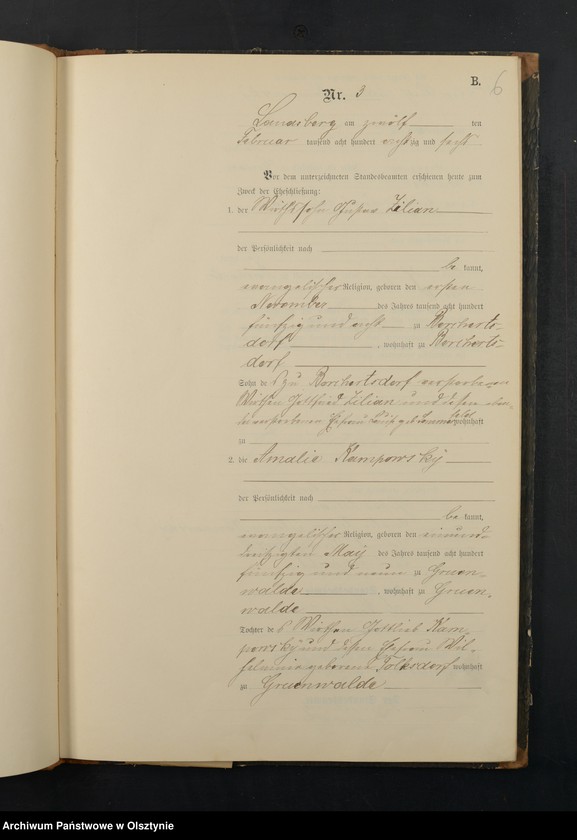 B.
6
Nr. 3
Landsberg am zwölf ten
Februar tausend acht hundert achtzig und sechs
Vor dem unterzeichneten Standesbeamten erschienen heute zum
Zweck der Eheschließung:
1. der Wirthssohn Gustav Zilian
der Persönlichkeit nach
be kannt,
evangelischer Religion, geboren den ersten
November des Jahres tausend acht hundert
fünfzig und acht zu Borcherts-
dorf, wohnhaft zu Borcherts-
dorf
Sohn des zu Borchertsdorf verstorbenen
Wirthen Gottfried Zilian und dessen
verstorbenen Ehefrau geb. wohnhaft
zu
2. die Amalie Kampowsky
der Persönlichkeit nach
be kannt,
evangelischer Religion, geboren den einund-
dreißigsten May des Jahres tausend acht hundert
fünfzig und neun zu Gruen-
walde, wohnhaft zu Gruen-
walde
Tochter des Wirthen Gottlieb Kam-
powsky und dessen Ehefrau Wil-
helmine geborene Tolksdorf wohnhaft
zu Gruenwalde
Archiwum Państwowe w Olsztynie